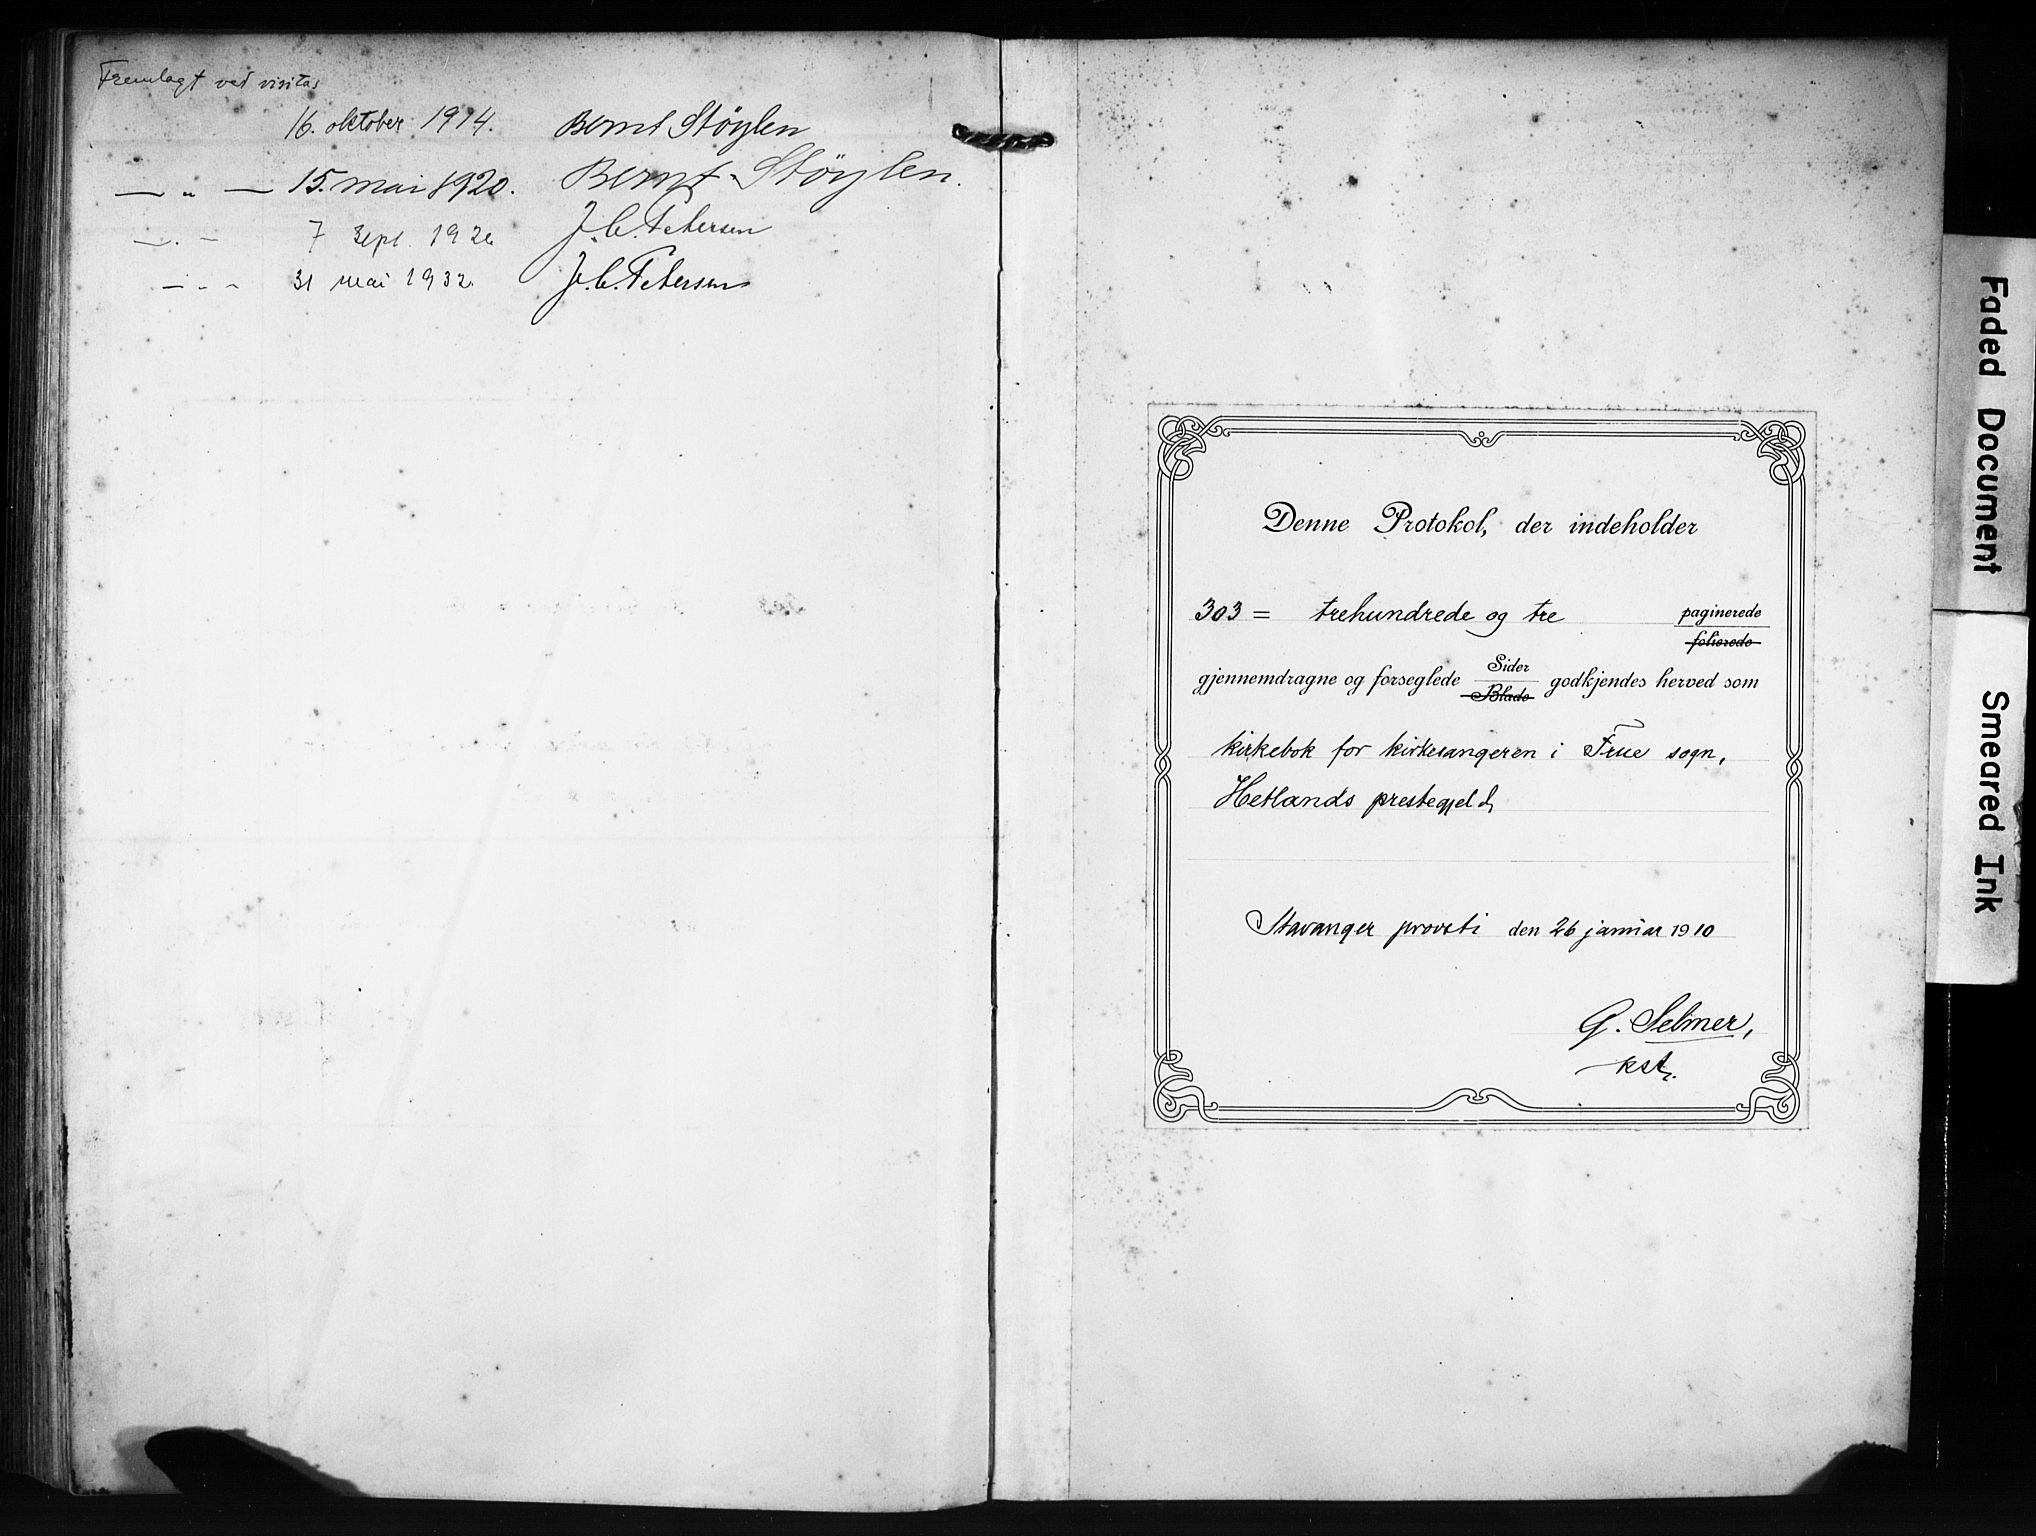 Fremlagt ved visitas
16. oktober 1914. Bernt Støylen
— „ — 15. mai 1920. Bernt Støylen.
— . — 7 Sept. 1926 J. C. Petersen
— . — 31 mai 1932. J. C. Petersen
Denne Protokol, der indeholder
303 = trehundrede og tre paginerede
folierede
gjennemdragne og forseglede Sider godkjendes herved som
Blade
kirkebok for kirkesangeren i Frue sogn,
Hetlands prestegjeld,
Stavanger provsti den 26 januar 1910
G. Selmer,
kst.
Faded Document
Smeared Ink